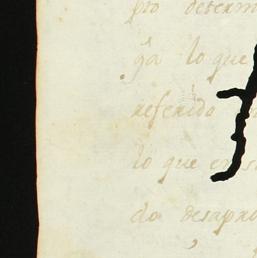 pto determ
g̃a lo que
referido
lo que en s
do desapro